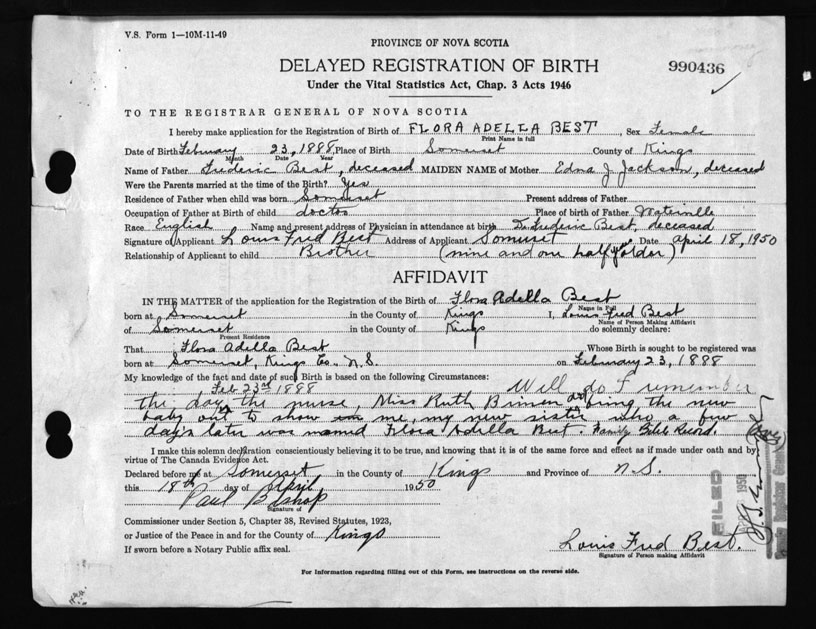 V.S. Form 1—10M-11-49
PROVINCE OF NOVA SCOTIA
DELAYED REGISTRATION OF BIRTH
990436
Under the Vital Statistics Act, Chap. 3 Acts 1946
TO THE REGISTRAR GENERAL OF NOVA SCOTIA
I hereby make application for the Registration of Birth of FLORA ADELLA BEST, Sex Female
Print Name in full
Date of Birth February 23, 1888 Place of Birth Somerset County of Kings
Month Date Year
Name of Father Frederic Best, deceased MAIDEN NAME of Mother Edna J. Jackson, deceased
Were the Parents married at the time of the Birth? Yes
Residence of Father when child was born Somerset Present address of Father
Occupation of Father at Birth of child doctor Place of birth of Father Waterville
Race English Name and present address of Physician in attendance at birth Dr. Frederic Best, deceased
Signature of Applicant Louis Fred Best Address of Applicant Somerset Date April 18, 1950
Relationship of Applicant to child Brother (nine and one half years older)
AFFIDAVIT
IN THE MATTER of the application for the Registration of the Birth of Flora Adella Best
Name in Full
born at Somerset in the County of Kings I, Louis Fred Best
Name of Person Making Affidavit
of Somerset in the County of Kings do solemnly declare:
Present Residence
That Flora Adella Best Whose Birth is sought to be registered was
born at Somerset, Kings Co. N.S. on February 23, 1888
My knowledge of the fact and date of such Birth is based on the following Circumstances:
Feb 23rd 1888 Well do I remember
the day the nurse, Miss Ruth bring the new
baby out to show me, my new sister who a few
days later was named Flora Adella Best. Family Bible Record.
I make this solemn declaration conscientiously believing it to be true, and knowing that it is of the same force and effect as if made under oath and by
virtue of The Canada Evidence Act.
Declared before me at Somerset, in the County of Kings and Province of N.S.
this 18th day of April 1950
Paul Bishop
Signature of
Commissioner under Section 5, Chapter 38, Revised Statutes, 1923,
or Justice of the Peace in and for the County of Kings
If sworn before a Notary Public affix seal.
Louis Fred Best.
Signature of Person making Affidavit
FILED
1950
For Information regarding filling out of this Form, see instructions on the reverse side.